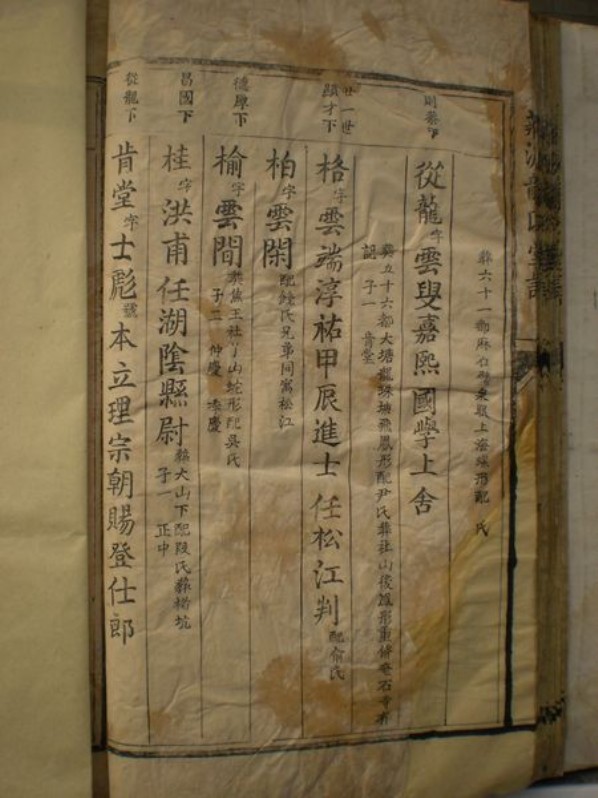 葬六十一都麻石 上海螺形配 氏
則 下
從龍字雲叟嘉熙國學上舍
葬五十六都大塘 珠坡飛鳳形配尹氏葬社山後鳳形重修 石 有
記 子一 肯堂
廿一世
顯才下
格字雲端淳祐甲辰進士任松江判配俞氏
柏字雲閑配 氏兄弟同寓松江
德厚下
榆字雲間葬焦王社丫山蛇形配吳氏
子二 仲慶 季慶
昌國下
桂字洪甫任湖陰縣尉葬大山下配段氏葬楊坑
子一 正中
從龍下
肯堂字士彪號本立理宗朝賜登仕郎